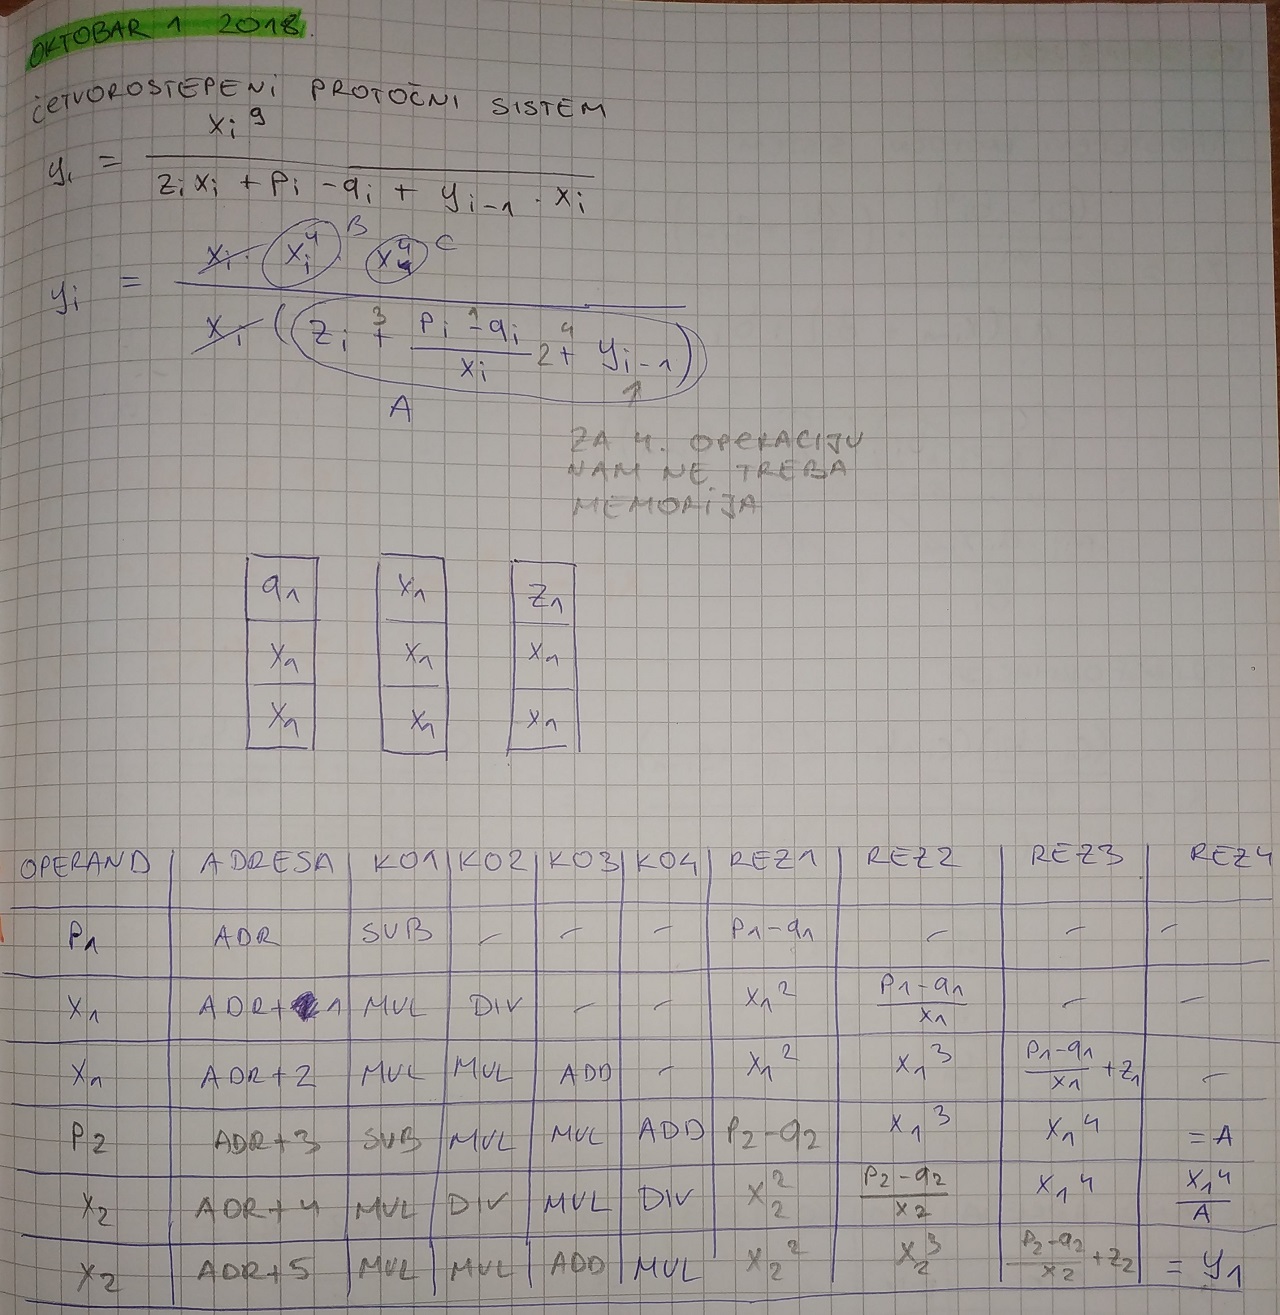 OKTOBAR 1 2018.
ČETVOROSTEPENI PROTOČNI SISTEM
yᵢ = xᵢ⁹ / (zᵢxᵢ + pᵢ - qᵢ + yᵢ₋₁ · xᵢ)
yᵢ = xᵢ · xᵢ⁴ B x⁴ C / xᵢ ((zᵢ +³ (pᵢ -¹ qᵢ) / xᵢ 2 +⁴ yᵢ₋₁))
A
↑
ZA 4. OPERACIJU
NAM NE TREBA
MEMORIJA
q₁ x₁ z₁
x₁ x₁ x₁
x₁ x₁ x₁
OPERAND ADRESA KO1 KO2 KO3 KO4 REZ1 REZ2 REZ3 REZ4
P₁ ADR SUB - - - P₁-q₁ - - -
X₁ ADR+1 MUL DIV - - X₁² (P₁-q₁)/x₁ - -
X₁ ADR+2 MUL MUL ADD - X₁² X₁³ (P₁-q₁)/x₁ + z₁ -
P₂ ADR+3 SUB MUL MUL ADD P₂-q₂ X₁³ X₁⁴ = A
X₂ ADR+4 MUL DIV MUL DIV X₂² (P₂-q₂)/x₂ X₁⁴ X₁⁴/A
X₂ ADR+5 MUL MUL ADD MUL X₂² X₂³ (P₂-q₂)/x₂ + z₂ = y₁